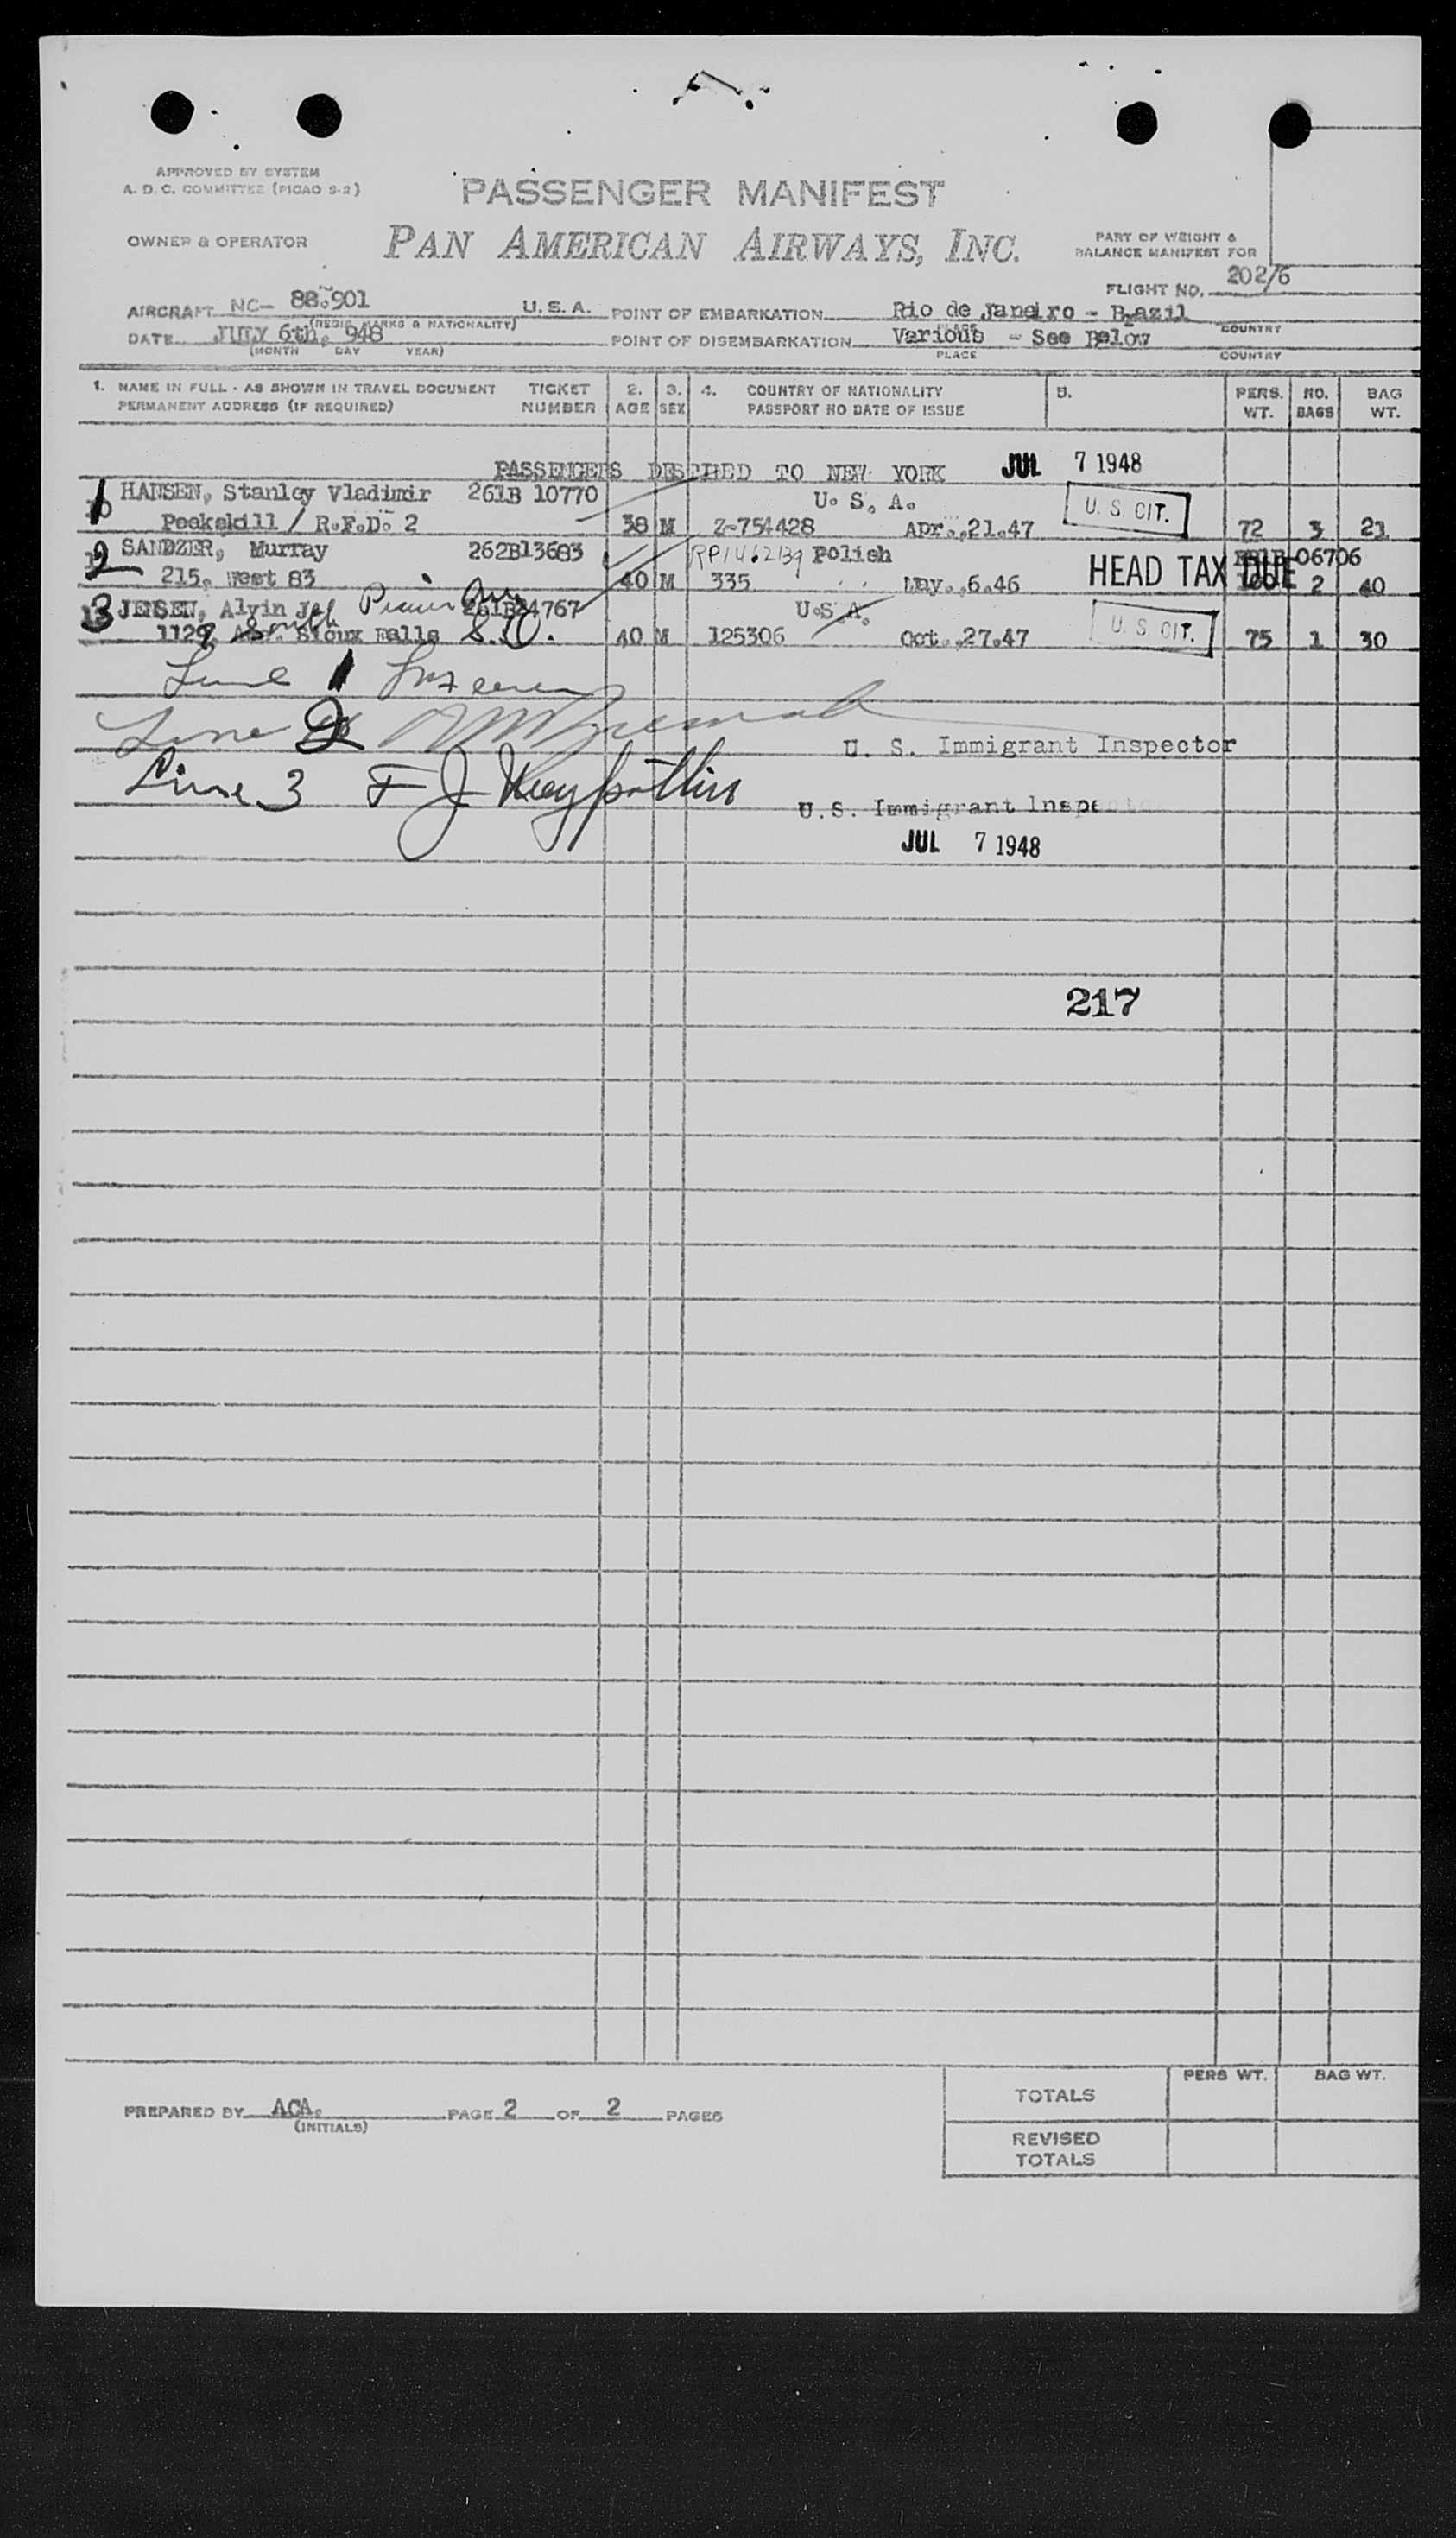 APPROVED BY SYSTEM
A. D. C. COMMITTEE (PICAO S-2)
PASSENGER MANIFEST
OWNER & OPERATOR
PAN AMERICAN AIRWAYS, INC.
PART OF WEIGHT &
BALANCE MANIFEST FOR
FLIGHT NO. 202/6
AIRCRAFT NC- 88.901 U. S. A. POINT OF EMBARKATION Rio de Janeiro - Brazil
(REGIS. MARKS & NATIONALITY) PLACE COUNTRY
DATE JULY 6th, 948 POINT OF DISEMBARKATION Various - See Below
(MONTH DAY YEAR) PLACE COUNTRY
1. NAME IN FULL - AS SHOWN IN TRAVEL DOCUMENT TICKET 2. 3. 4. COUNTRY OF NATIONALITY 5. PERS. NO. BAG
PERMANENT ADDRESS (IF REQUIRED) NUMBER AGE SEX PASSPORT NO DATE OF ISSUE WT. BAGS WT.
PASSENGERS DESTINED TO NEW YORK JUL 7 1948
1 HANSEN, Stanley Vladimir 261B 10770 U. S. A. U. S. CIT.
Peekskill / R.F.D. 2 38 M Z-754428 Apr.,21.47 72 3 21
2 SANDZER, Murray 262B13683 Polish 06706
215, West 83 40 M 335 May.,6.46 HEAD TAX DUE 100 2 40
3 JENSEN, Alvin 261B24767 U.S.A. U. S. CIT.
1129, South Sioux Falls S.D. 40 M 125306 Oct.,27.47 75 1 30
Line 1
Line 2
U. S. Immigrant Inspector
Line 3 F J
U.S. Immigrant Inspector
JUL 7 1948
217
PERS WT. BAG WT.
TOTALS
PREPARED BY ACA. PAGE 2 OF 2 PAGES
(INITIALS)
REVISED
TOTALS